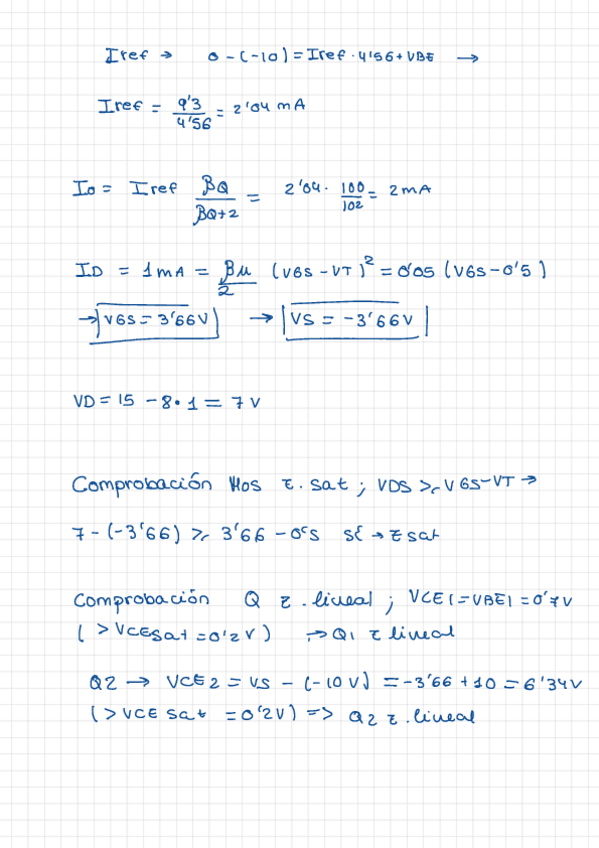 Iref → 0 - (-10) = Iref · 4'56 + VBE →
Iref = 9'3/4'56 = 2'04 mA
Io = Iref βQ/βQ+2 = 2'04 · 100/102 = 2 mA
ID = 1 mA = βµ/2 (VGS - VT)² = 0'05 (VGS - 0'5)
→ VGS = 3'66 V → VS = -3'66 V
VD = 15 - 8 · 1 = 7 V
Comprobación Mos z. sat ; VDS ≥ VGS - VT →
7 - (-3'66) ≥ 3'66 - 0'5 sí → z sat
Comprobación Q z. lineal ; VCE1 = VBE1 = 0'7 V
( > VCEsat = 0'2 V ) → Q1 z lineal
Q2 → VCE2 = VS - (-10 V) = -3'66 + 10 = 6'34 V
( > VCE sat = 0'2 V) => Q2 z. lineal